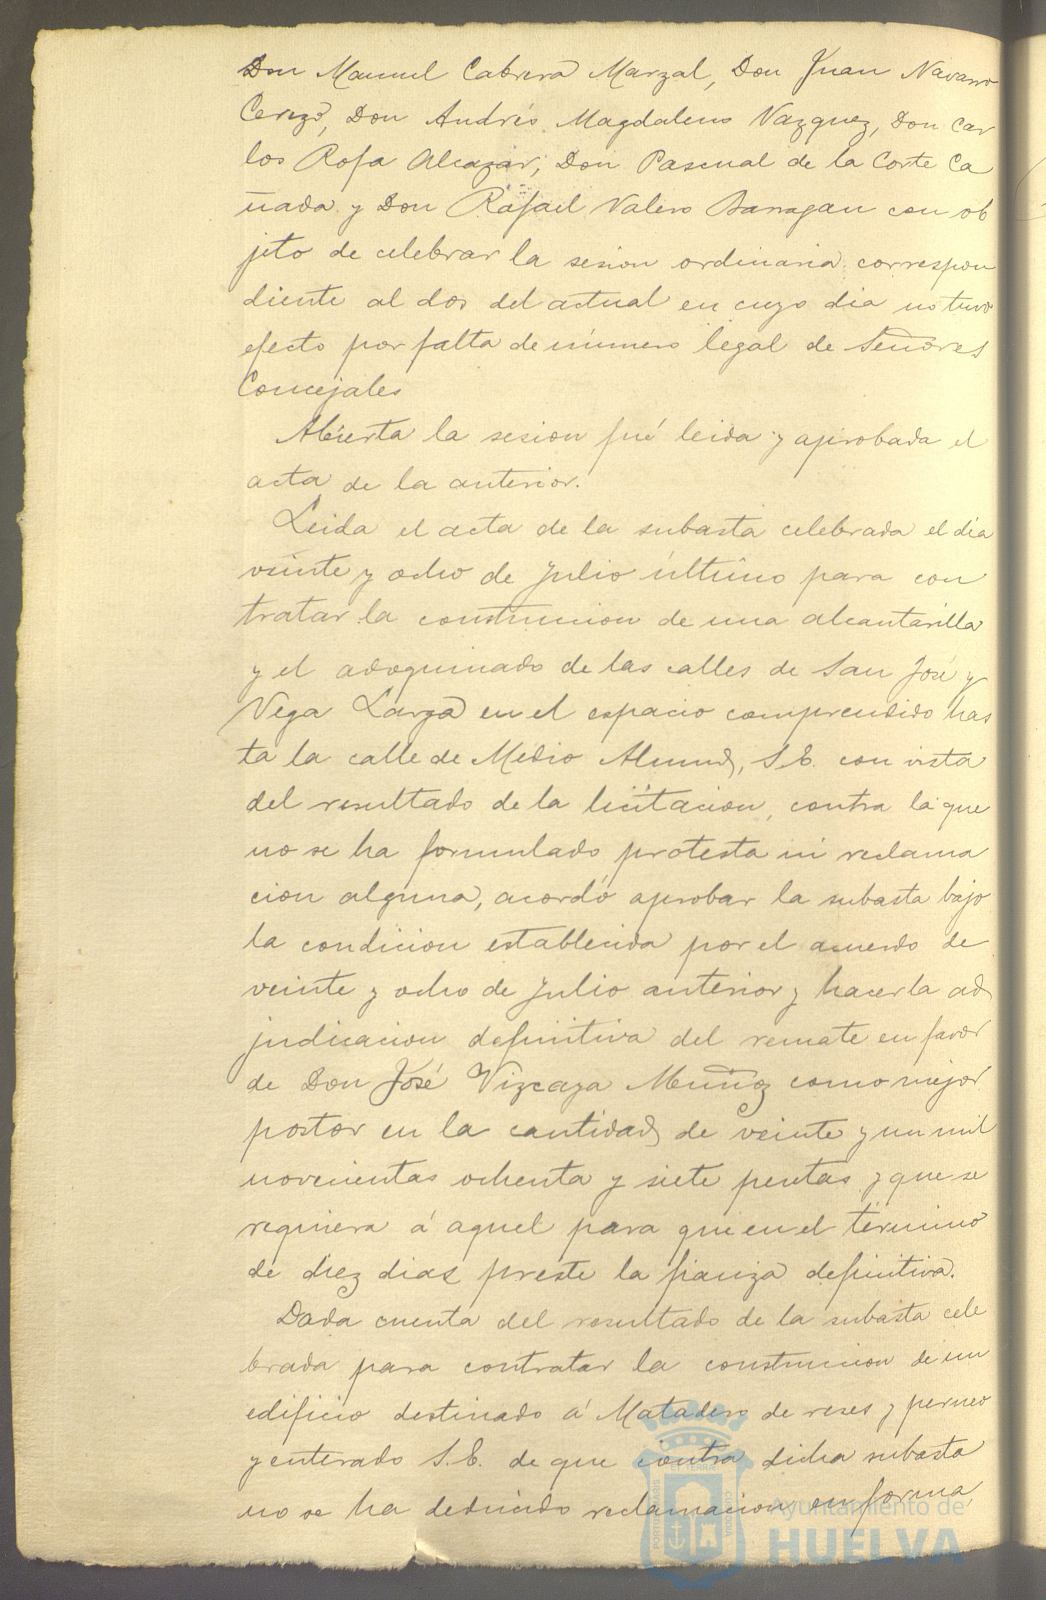 Don Manuel Cabrera Marzal, Don Juan Navarro
Cerezo, Don Andrés Magdaleno Vazquez, Don Car
los Rofa Alcazar, Don Pascual de la Corte Ca
ñada y Don Rafael Valero Barragan con ob
jeto de celebrar la sesion ordinaria correspon
diente al dos del actual en cuyo dia no tuvo
efecto por falta de número legal de Señores
Concejales
Abierta la sesion fué leida y aprobada el
acta de la anterior.
Leida el acta de la subasta celebrada el dia
veinte y ocho de Julio último para con
tratar la construccion de una alcantarilla
y el adoquinado de las calles de San José y
Vega Larga en el espacio comprendido has
ta la calle de Medio Almud, S.E. con vista
del resultado de la licitacion, contra la que
no se ha formulado protesta ni reclama
cion alguna, acordó aprobar la subasta bajo
la condicion establecida por el acuerdo de
veinte y ocho de Julio anterior y hacer la ad
judicacion definitiva del remate en favor
de Don José Vizcaya Muñoz como mejor
postor en la cantidad de veinte y un mil
novecientas ochenta y siete pesetas y que se
requiera á aquel para que en el término
de diez dias preste la fianza definitiva.
Dada cuenta del resultado de la subasta cele
brada para contratar la construccion de un
edificio destinado á Matadero de reses y perneo
y enterado S.E. de que contra dicha subasta
no se ha deducido reclamacion en forma,
Ayuntamiento de
HUELVA